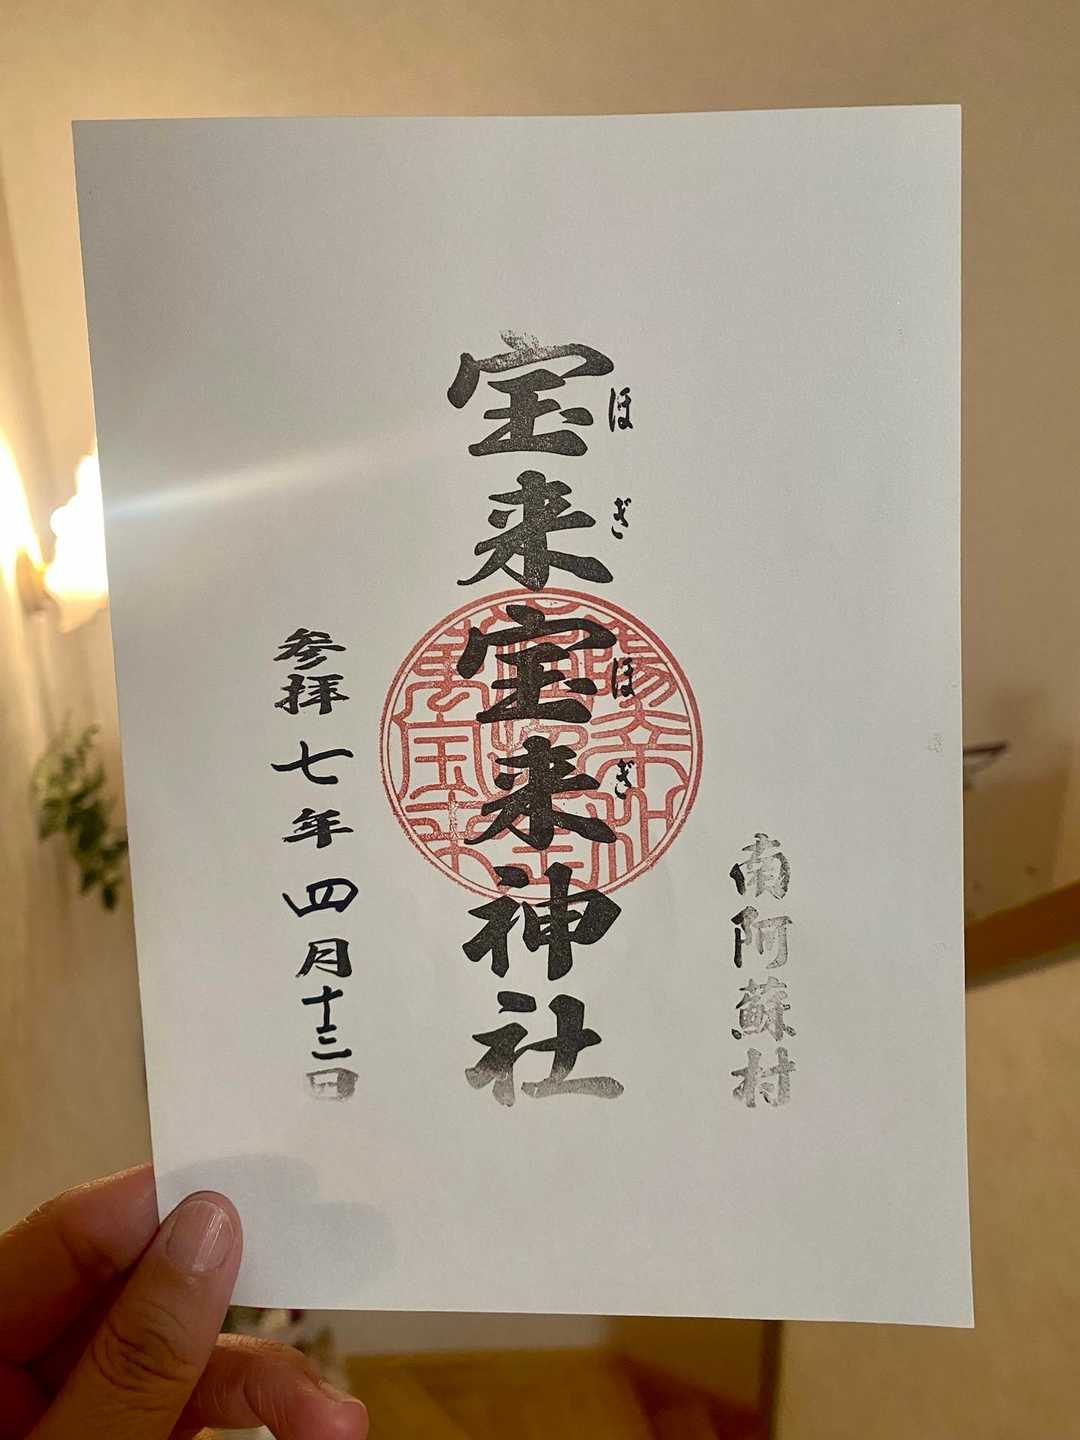 南阿蘇村
宝来宝来神社
ほぎ ほぎ
参拝 七年 四月十三日